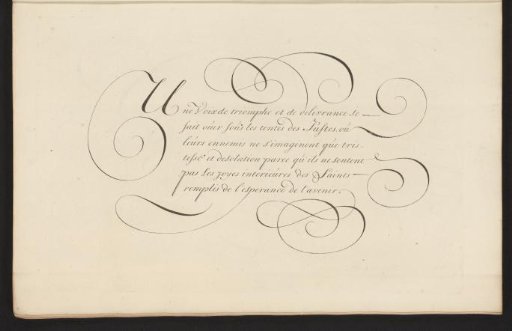 Une Voix de triomphe et de delivrance se
fait ouir sous les tentes des Justes, ou
leurs ennemis ne s'imaginent que tris
tesse et desolation parce qu'ils ne sentent
pas les joyes interieures des Saints
remplis de l'esperance de l'avenir.